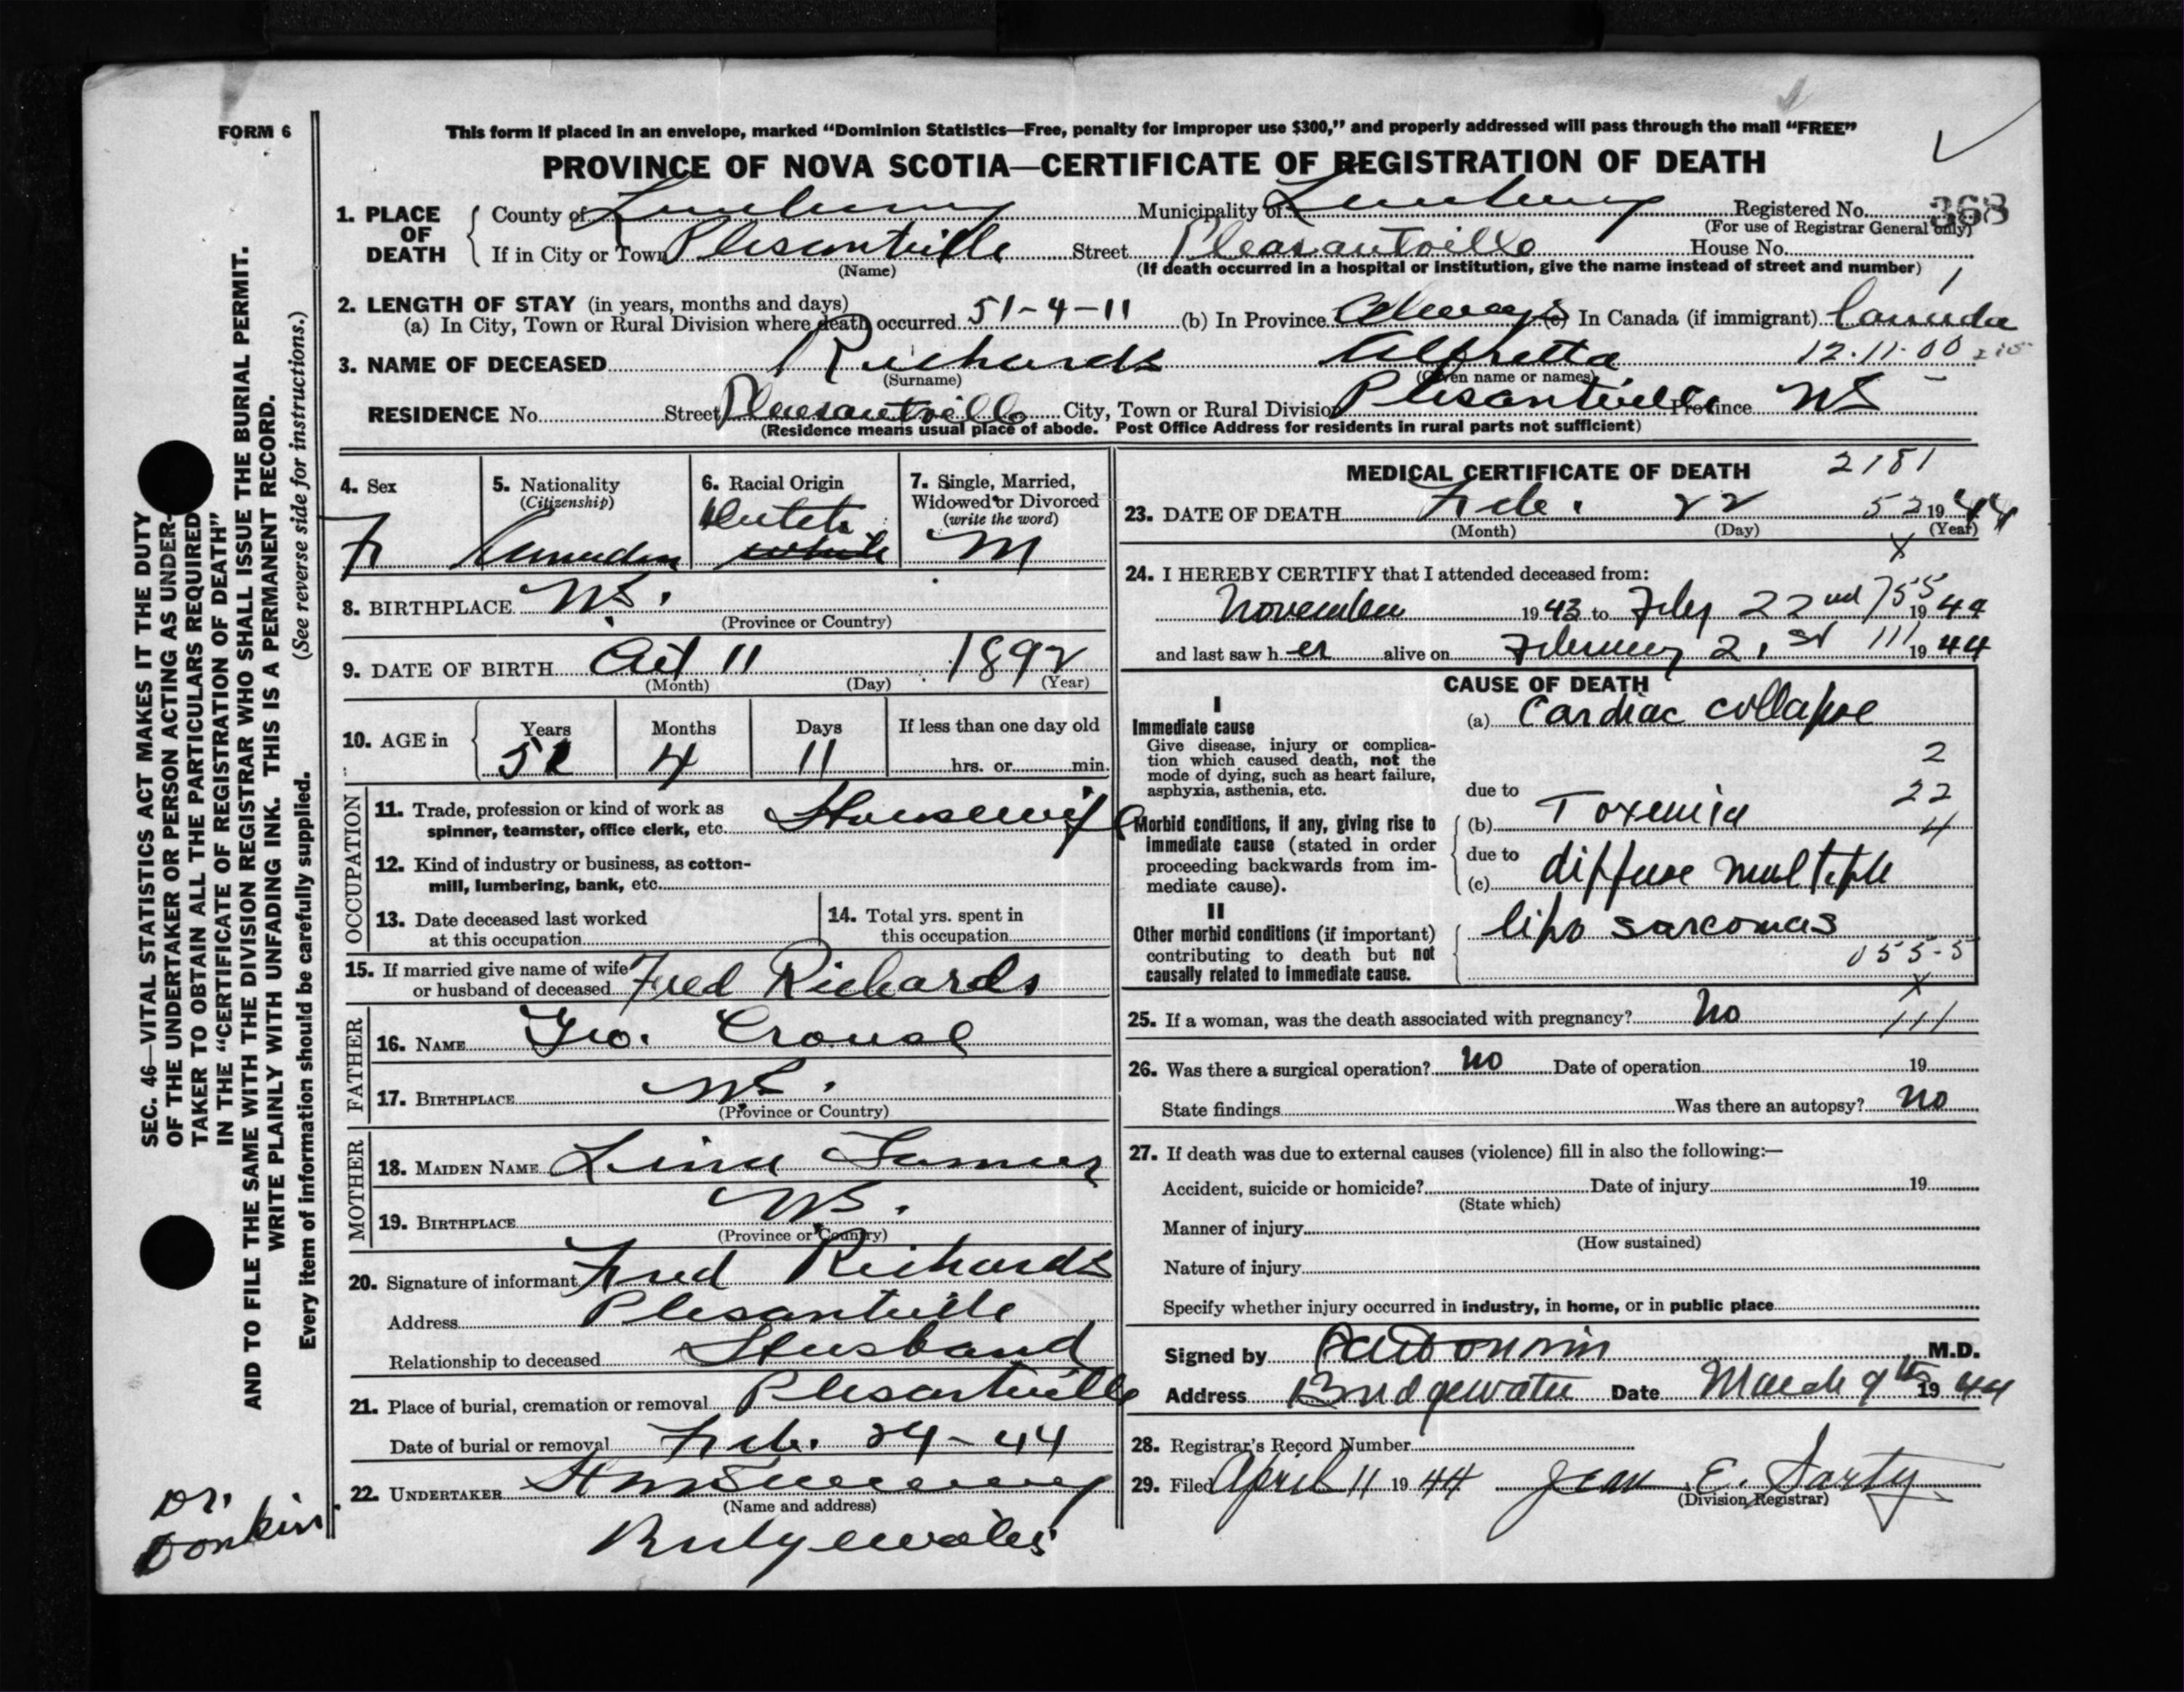 FORM 6
This form if placed in an envelope, marked “Dominion Statistics—Free, penalty for improper use $300,” and properly addressed will pass through the mail “FREE”
PROVINCE OF NOVA SCOTIA—CERTIFICATE OF REGISTRATION OF DEATH
1. PLACE OF DEATH
County of Lunenburg Municipality of Lunenburg Registered No. 368
(For use of Registrar General only)
If in City or Town Plesantville Street Pleasantville House No.
(Name) (If death occurred in a hospital or institution, give the name instead of street and number)
2. LENGTH OF STAY (in years, months and days)
(a) In City, Town or Rural Division where death occurred 51-4-11 (b) In Province Always (c) In Canada (if immigrant) Canada
3. NAME OF DECEASED Richards Alfretta 12.11.00
(Surname) (Given name or names)
RESIDENCE No. Street Pleasantville City, Town or Rural Division Plesantville Province NS
(Residence means usual place of abode. Post Office Address for residents in rural parts not sufficient)
4. Sex
F
5. Nationality
(Citizenship)
Canadian
6. Racial Origin
Dutch
white
7. Single, Married, Widowed or Divorced
(write the word)
M
8. BIRTHPLACE NS.
(Province or Country)
9. DATE OF BIRTH Oct 11 1892
(Month) (Day) (Year)
10. AGE in
Years Months Days If less than one day old
51 4 11 hrs. or min.
OCCUPATION
11. Trade, profession or kind of work as
spinner, teamster, office clerk, etc. Housewife
12. Kind of industry or business, as cotton-
mill, lumbering, bank, etc.
13. Date deceased last worked
at this occupation
14. Total yrs. spent in
this occupation
15. If married give name of wife
or husband of deceased Fred Richards
FATHER
16. NAME Geo. Crouse
17. BIRTHPLACE NS.
(Province or Country)
MOTHER
18. MAIDEN NAME Lina
19. BIRTHPLACE NS.
(Province or Country)
20. Signature of informant Fred Richards
Address Plesantville
Relationship to deceased Husband
21. Place of burial, cremation or removal Plesantville
Date of burial or removal Feb. 24-44
22. UNDERTAKER
(Name and address)
Bridgewater
MEDICAL CERTIFICATE OF DEATH 2181
23. DATE OF DEATH Feb. 22 52 1944
(Month) (Day) (Year)
x
24. I HEREBY CERTIFY that I attended deceased from:
November 1943 to Feby 22nd 755 1944
and last saw her alive on February 21st 111 1944
CAUSE OF DEATH
I
Immediate cause
Give disease, injury or complica-
tion which caused death, not the
mode of dying, such as heart failure,
asphyxia, asthenia, etc.
(a) Cardiac collapse
2
due to 22
Morbid conditions, if any, giving rise to
immediate cause (stated in order
proceeding backwards from im-
mediate cause).
(b) Toxemia 4
due to
(c) diffuse multiple
II
Other morbid conditions (if important)
contributing to death but not
causally related to immediate cause.
lipo sarcomas
055-5
x
25. If a woman, was the death associated with pregnancy? No 111
26. Was there a surgical operation? No Date of operation 19
State findings Was there an autopsy? No
27. If death was due to external causes (violence) fill in also the following:—
Accident, suicide or homicide? Date of injury 19
(State which)
Manner of injury
(How sustained)
Nature of injury
Specify whether injury occurred in industry, in home, or in public place
Signed by M.D.
Address Bridgewater Date March 9th 1944
28. Registrar's Record Number
29. Filed April 11 1944 Jean E. Sarty
(Division Registrar)
SEC. 46—VITAL STATISTICS ACT MAKES IT THE DUTY
OF THE UNDERTAKER OR PERSON ACTING AS UNDER-
TAKER TO OBTAIN ALL THE PARTICULARS REQUIRED
IN THE “CERTIFICATE OF REGISTRATION OF DEATH”
AND TO FILE THE SAME WITH THE DIVISION REGISTRAR WHO SHALL ISSUE THE BURIAL PERMIT.
WRITE PLAINLY WITH UNFADING INK. THIS IS A PERMANENT RECORD.
Every item of information should be carefully supplied. (See reverse side for instructions.)
Dr.
Donkin